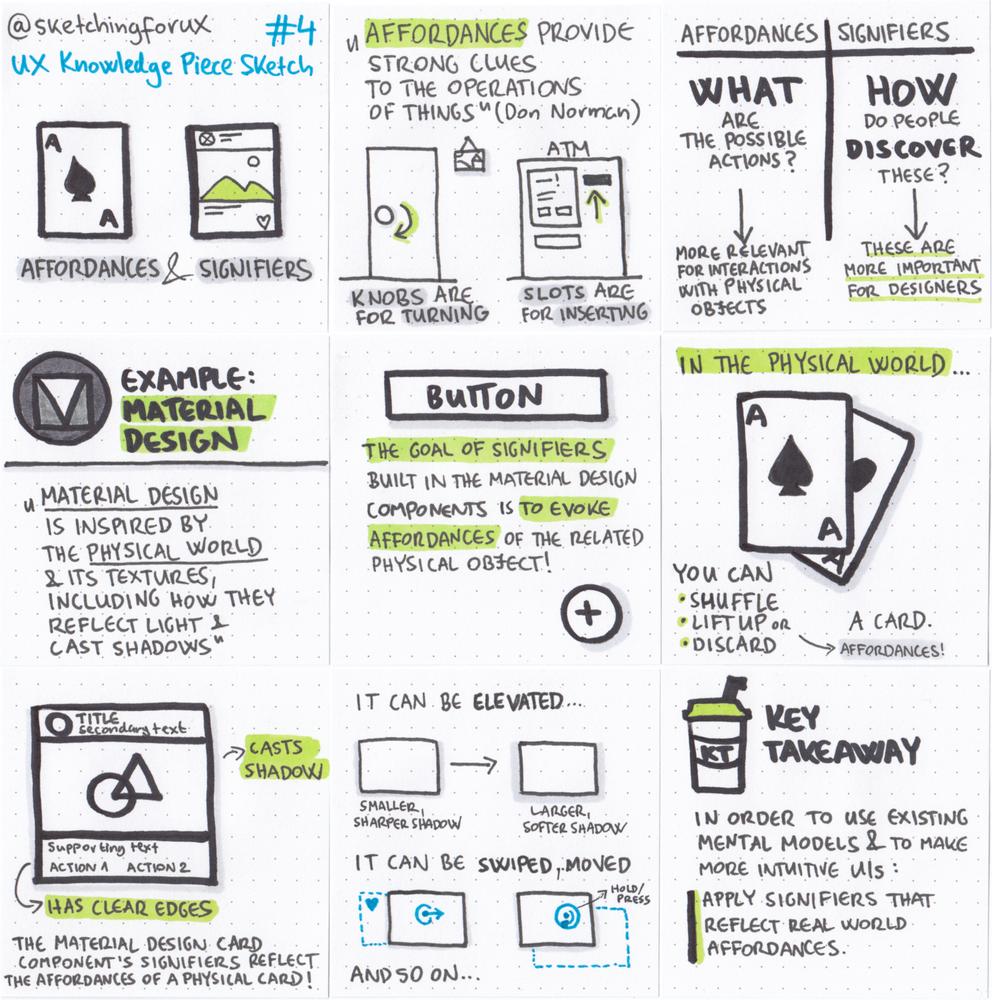 @sketchingforux
#4
UX Knowledge Piece Sketch
A
A
AFFORDANCES & SIGNIFIERS
"AFFORDANCES PROVIDE
STRONG CLUES
TO THE OPERATIONS
OF THINGS" (Don Norman)
ATM
KNOBS ARE
FOR TURNING
SLOTS ARE
FOR INSERTING
AFFORDANCES
WHAT
ARE
THE POSSIBLE
ACTIONS?
MORE RELEVANT
FOR INTERACTIONS
WITH PHYSICAL
OBJECTS
SIGNIFIERS
HOW
DO PEOPLE
DISCOVER
THESE?
THESE ARE
MORE IMPORTANT
FOR DESIGNERS
EXAMPLE:
MATERIAL
DESIGN
"MATERIAL DESIGN
IS INSPIRED BY
THE PHYSICAL WORLD
& ITS TEXTURES,
INCLUDING HOW THEY
REFLECT LIGHT &
CAST SHADOWS"
BUTTON
THE GOAL OF SIGNIFIERS
BUILT IN THE MATERIAL DESIGN
COMPONENTS IS TO EVOKE
AFFORDANCES OF THE RELATED
PHYSICAL OBJECT!
+
IN THE PHYSICAL WORLD...
A
A
A
YOU CAN
• SHUFFLE
• LIFT UP OR
• DISCARD
A CARD.
AFFORDANCES!
TITLE
Secondary text
Supporting text
ACTION 1 ACTION 2
CASTS
SHADOW
HAS CLEAR EDGES
THE MATERIAL DESIGN CARD
COMPONENT'S SIGNIFIERS REFLECT
THE AFFORDANCES OF A PHYSICAL CARD!
IT CAN BE ELEVATED...
SMALLER,
SHARPER SHADOW
LARGER,
SOFTER SHADOW
IT CAN BE SWIPED, MOVED
HOLD/
PRESS
AND SO ON...
KT
KEY
TAKEAWAY
IN ORDER TO USE EXISTING
MENTAL MODELS & TO MAKE
MORE INTUITIVE UIs:
APPLY SIGNIFIERS THAT
REFLECT REAL WORLD
AFFORDANCES.